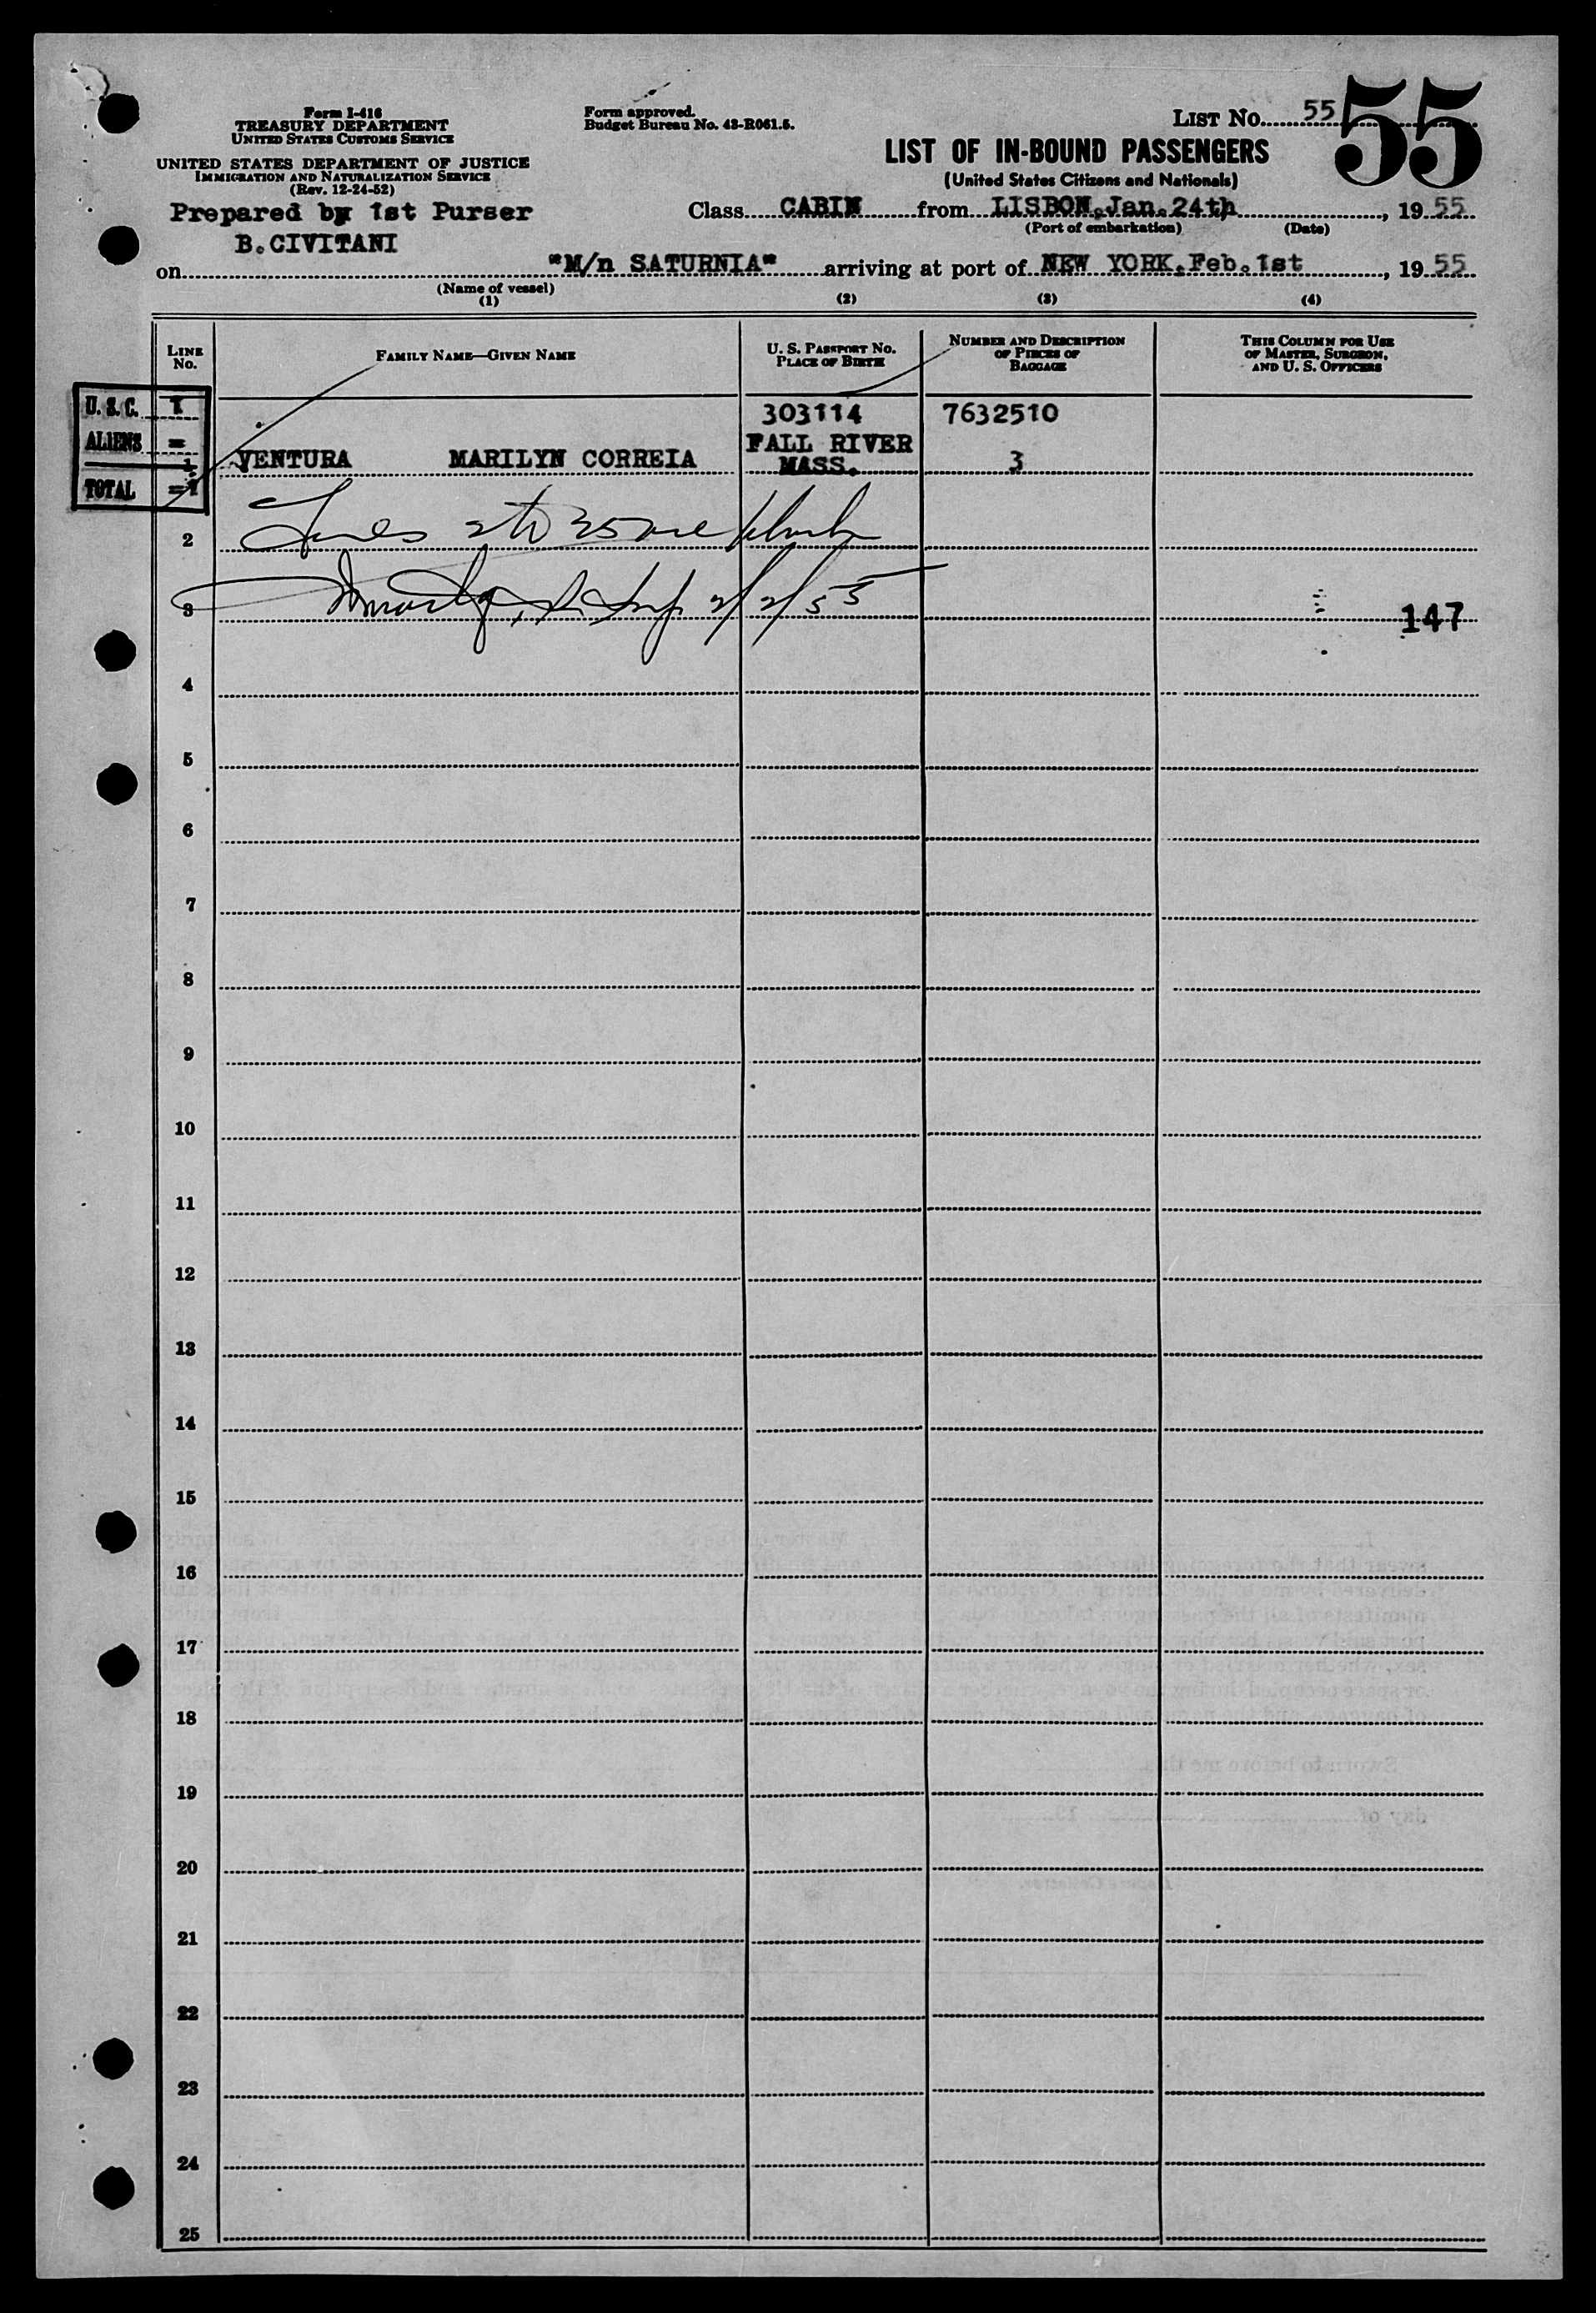 Form I-416
TREASURY DEPARTMENT
UNITED STATES CUSTOMS SERVICE
UNITED STATES DEPARTMENT OF JUSTICE
IMMIGRATION AND NATURALIZATION SERVICE
(Rev. 12-24-52)
Form approved.
Budget Bureau No. 43-R061.5.
LIST No. 55
55
LIST OF IN-BOUND PASSENGERS
(United States Citizens and Nationals)
Prepared by 1st Purser
B.CIVITANI
Class CABIN from LISBON,Jan.24th, 1955
(Port of embarkation) (Date)
on "M/n SATURNIA" arriving at port of NEW YORK.Feb.1st, 1955
(Name of vessel)
(1) (2) (3) (4)
LINE No.
FAMILY NAME—GIVEN NAME
U. S. PASSPORT No.
PLACE OF BIRTH
NUMBER AND DESCRIPTION
OF PIECES OF
BAGGAGE
THIS COLUMN FOR USE
OF MASTER, SURGEON,
AND U. S. OFFICERS
U.S.C. 1
ALIENS =
TOTAL =1
303114 7632510
1 VENTURA MARILYN CORREIA FALL RIVER MASS. 3
2
3 2/2/55 147
4
5
6
7
8
9
10
11
12
13
14
15
16
17
18
19
20
21
22
23
24
25